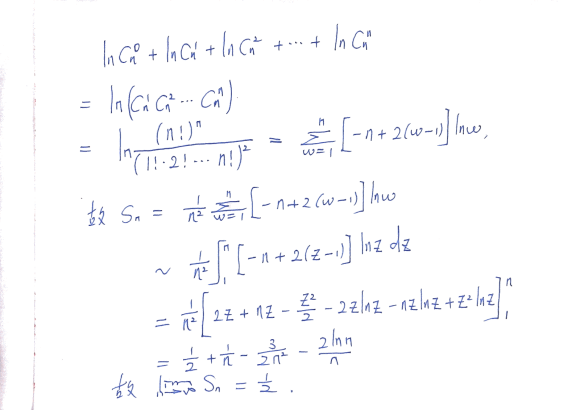 ln C_n^0 + ln C_n^1 + ln C_n^2 + ⋯ + ln C_n^n
= ln(C_n^1 C_n^2 ⋯ C_n^n)
= ln (n!)^n / (1!·2!⋯ n!)^2 = ∑_{w=1}^{n} [-n+2(w-1)] ln w,
故 S_n = 1/n^2 ∑_{w=1}^{n} [-n+2(w-1)] ln w
~ 1/n^2 ∫_1^n [-n+2(z-1)] ln z dz
= 1/n^2 [2z + nz - z^2/2 - 2z ln z - nz ln z + z^2 ln z]_1^n
= 1/2 + 1/n - 3/(2n^2) - 2 ln n / n
故 lim_{n→∞} S_n = 1/2 .